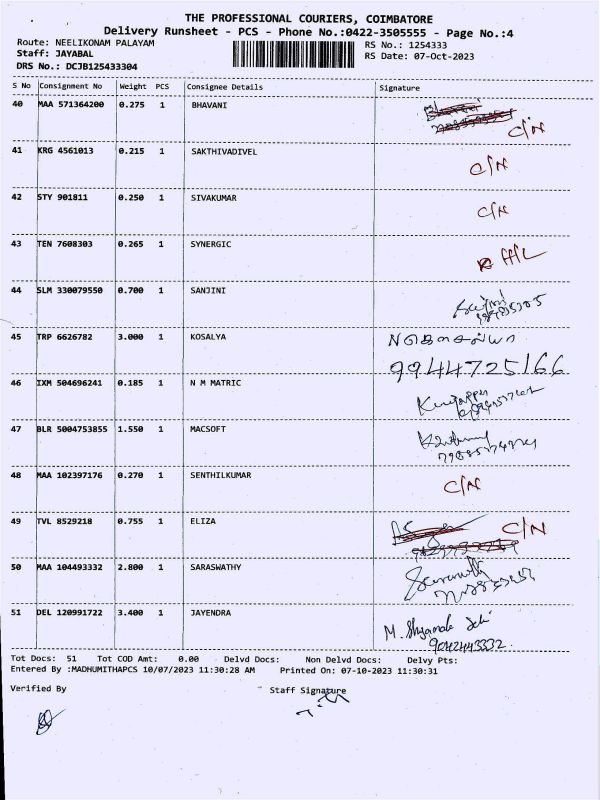 THE PROFESSIONAL COURIERS, COIMBATORE
Delivery Runsheet - PCS - Phone No.:0422-3505555 - Page No.:4
Route: NEELIKONAM PALAYAM RS No.: 1254333
Staff: JAYABAL RS Date: 07-Oct-2023
DRS No.: DCJB125433304
S No Consignment No Weight PCS Consignee Details Signature
40 MAA 571364200 0.275 1 BHAVANI C/N
41 KRG 4561013 0.215 1 SAKTHIVADIVEL C/N
42 STY 901811 0.250 1 SIVAKUMAR C/N
43 TEN 7608303 0.265 1 SYNERGIC
44 SLM 330079550 0.700 1 SANJINI
45 TRP 6626782 3.000 1 KOSALYA
9944725166
46 IXM 504696241 0.185 1 N M MATRIC
47 BLR 5004753855 1.550 1 MACSOFT
48 MAA 102397176 0.270 1 SENTHILKUMAR C/N
49 TVL 8529218 0.755 1 ELIZA C/N
50 MAA 104493332 2.800 1 SARASWATHY
51 DEL 120991722 3.400 1 JAYENDRA M. Shyamala Devi
9042443332
Tot Docs: 51 Tot COD Amt: 0.00 Delvd Docs: Non Delvd Docs: Delvy Pts:
Entered By :MADHUMITHAPCS 10/07/2023 11:30:28 AM Printed On: 07-10-2023 11:30:31
Verified By Staff Signature